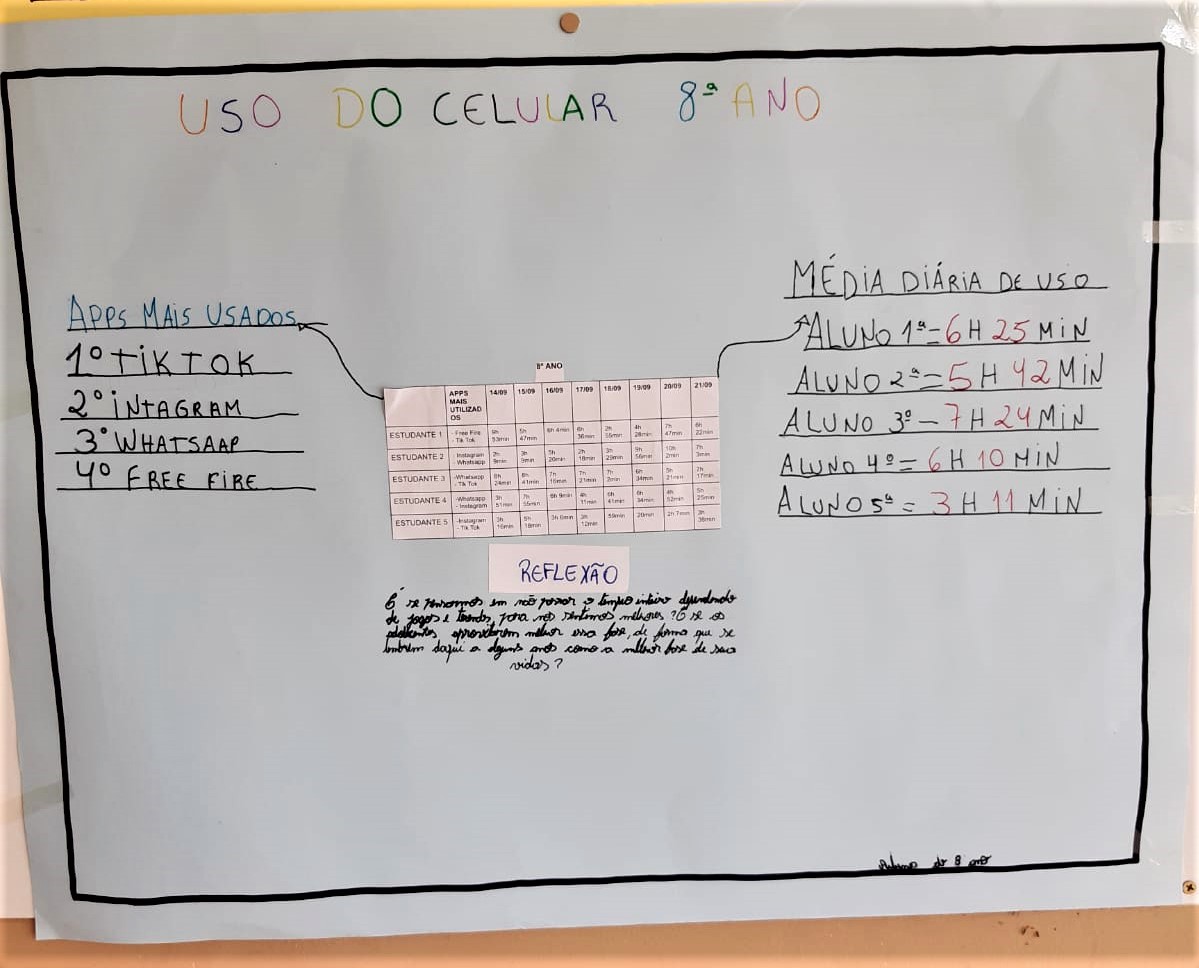 USO DO CELULAR 8ª ANO
APPS MAIS USADOS
1º TIKTOK
2º INTAGRAM
3º WHATSAAP
4º FREE FIRE
MÉDIA DIÁRIA DE USO
ALUNO 1ª = 6 H 25 MIN
ALUNO 2ª = 5 H 42 MIN
ALUNO 3º - 7 H 24 MIN
ALUNO 4º = 6 H 10 MIN
ALUNO 5ª = 3 H 11 MIN
8º ANO
APPS MAIS UTILIZAD OS 14/09 15/09 16/09 17/09 18/09 19/09 20/09 21/09
ESTUDANTE 1 - Free Fire - Tik Tok 5h 47min 6h 4min 6h 36min 2h 55min 4h 28min 7h 47min 6h 22min
ESTUDANTE 2 - Instagram - Whatsapp 2h 9min 3h 9min 5h 20min 2h 18min 3h 29min 9h 56min 10h 2min 7h 3min
ESTUDANTE 3 - Whatsapp - Tik Tok 8h 24min 8h 41min 7h 16min 7h 21min 7h 6h 34min 5h 21min 7h 17min
ESTUDANTE 4 - Whatsapp - Instagram 3h 51min 7h 55min 6h 9min 4h 11min 6h 41min 34min 4h 52min 5h 25min
ESTUDANTE 5 - Instagram - Tik Tok 3h 16min 5h 18min 3h 12min 59min 20min 2h 7min 3h 38min
REFLEXÃO
E se pensarmos em não passar o tempo inteiro dependendo
de jogos e trends, para nos sentirmos melhores? E se os
adolescentes aproveitarem melhor essa fase, de forma que se
lembrem daqui a alguns anos como a melhor fase de suas
vidas?
Alunos do 8 ano